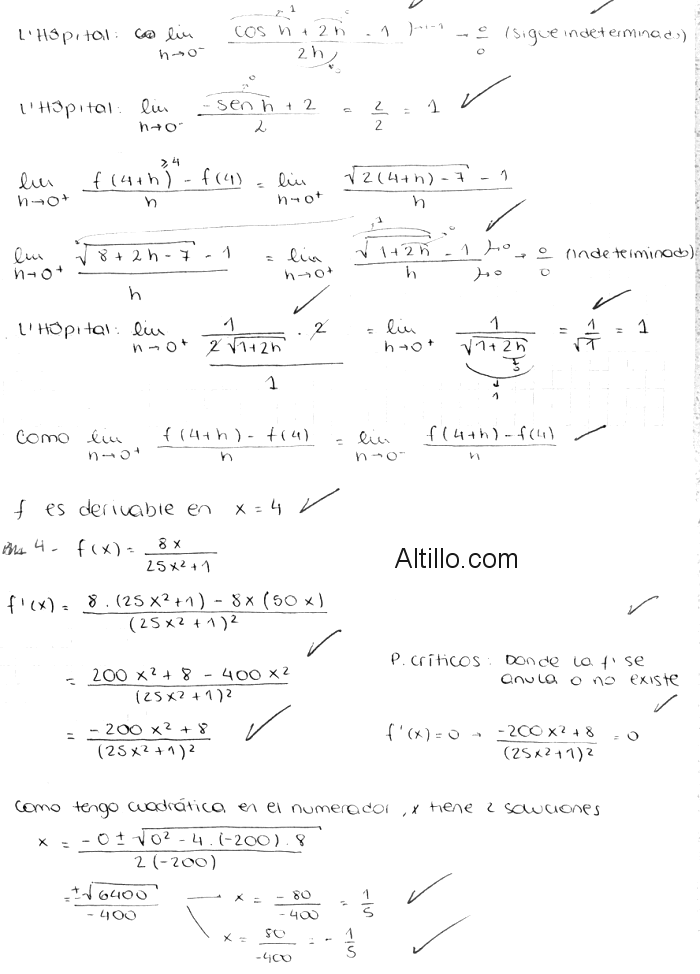 L'Hôpital: lim h→0⁻ (cos h + 2h - 1)/(2h) → 0/0 (sigue indeterminado)
L'Hôpital: lim h→0⁻ (-sen h + 2)/2 = 2/2 = 1
lim h→0⁺ (f(4+h) - f(4))/h = lim h→0⁺ (√(2(4+h) - 7) - 1)/h
lim h→0⁺ (√(8 + 2h - 7) - 1)/h = lim h→0⁺ (√(1+2h) - 1)/h → 0/0 (indeterminado)
L'Hôpital: lim h→0⁺ (1/(2√(1+2h)) · 2)/1 = lim h→0⁺ 1/√(1+2h) = 1/√1 = 1
Como lim h→0⁺ (f(4+h) - f(4))/h = lim h→0⁻ (f(4+h) - f(4))/h
f es derivable en x = 4
4 - f(x) = 8x/(25x²+1)
Altillo.com
f'(x) = (8 . (25x²+1) - 8x (50x))/(25x²+1)²
= (200x² + 8 - 400x²)/(25x²+1)²
P. críticos: Donde la f' se
anula o no existe
= (-200x² + 8)/(25x²+1)²
f'(x) = 0 → (-200x² + 8)/(25x²+1)² = 0
Como tengo cuadrática en el numerador, x tiene 2 soluciones
x = (-0 ± √(0² - 4 . (-200) . 8))/(2(-200))
= ±√6400/-400
x = -80/-400 = 1/5
x = 80/-400 = - 1/5